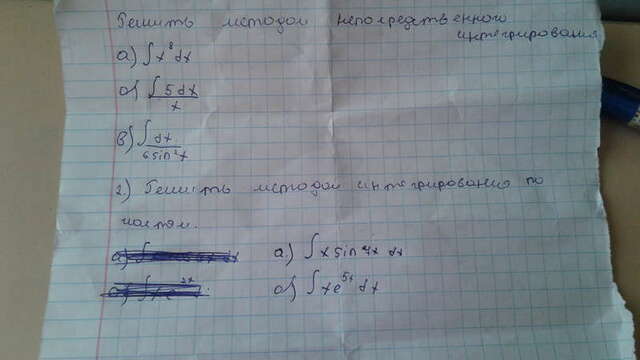 Решить методом непосредственного
интегрирования
а) ∫ x⁸ dx
б) ∫ 5dx/x
в) ∫ dx/6sin²x
2) Решить методом интегрирования по
частям.
а) ∫ x sin 4x dx
б) ∫ x e⁵ˣ dx